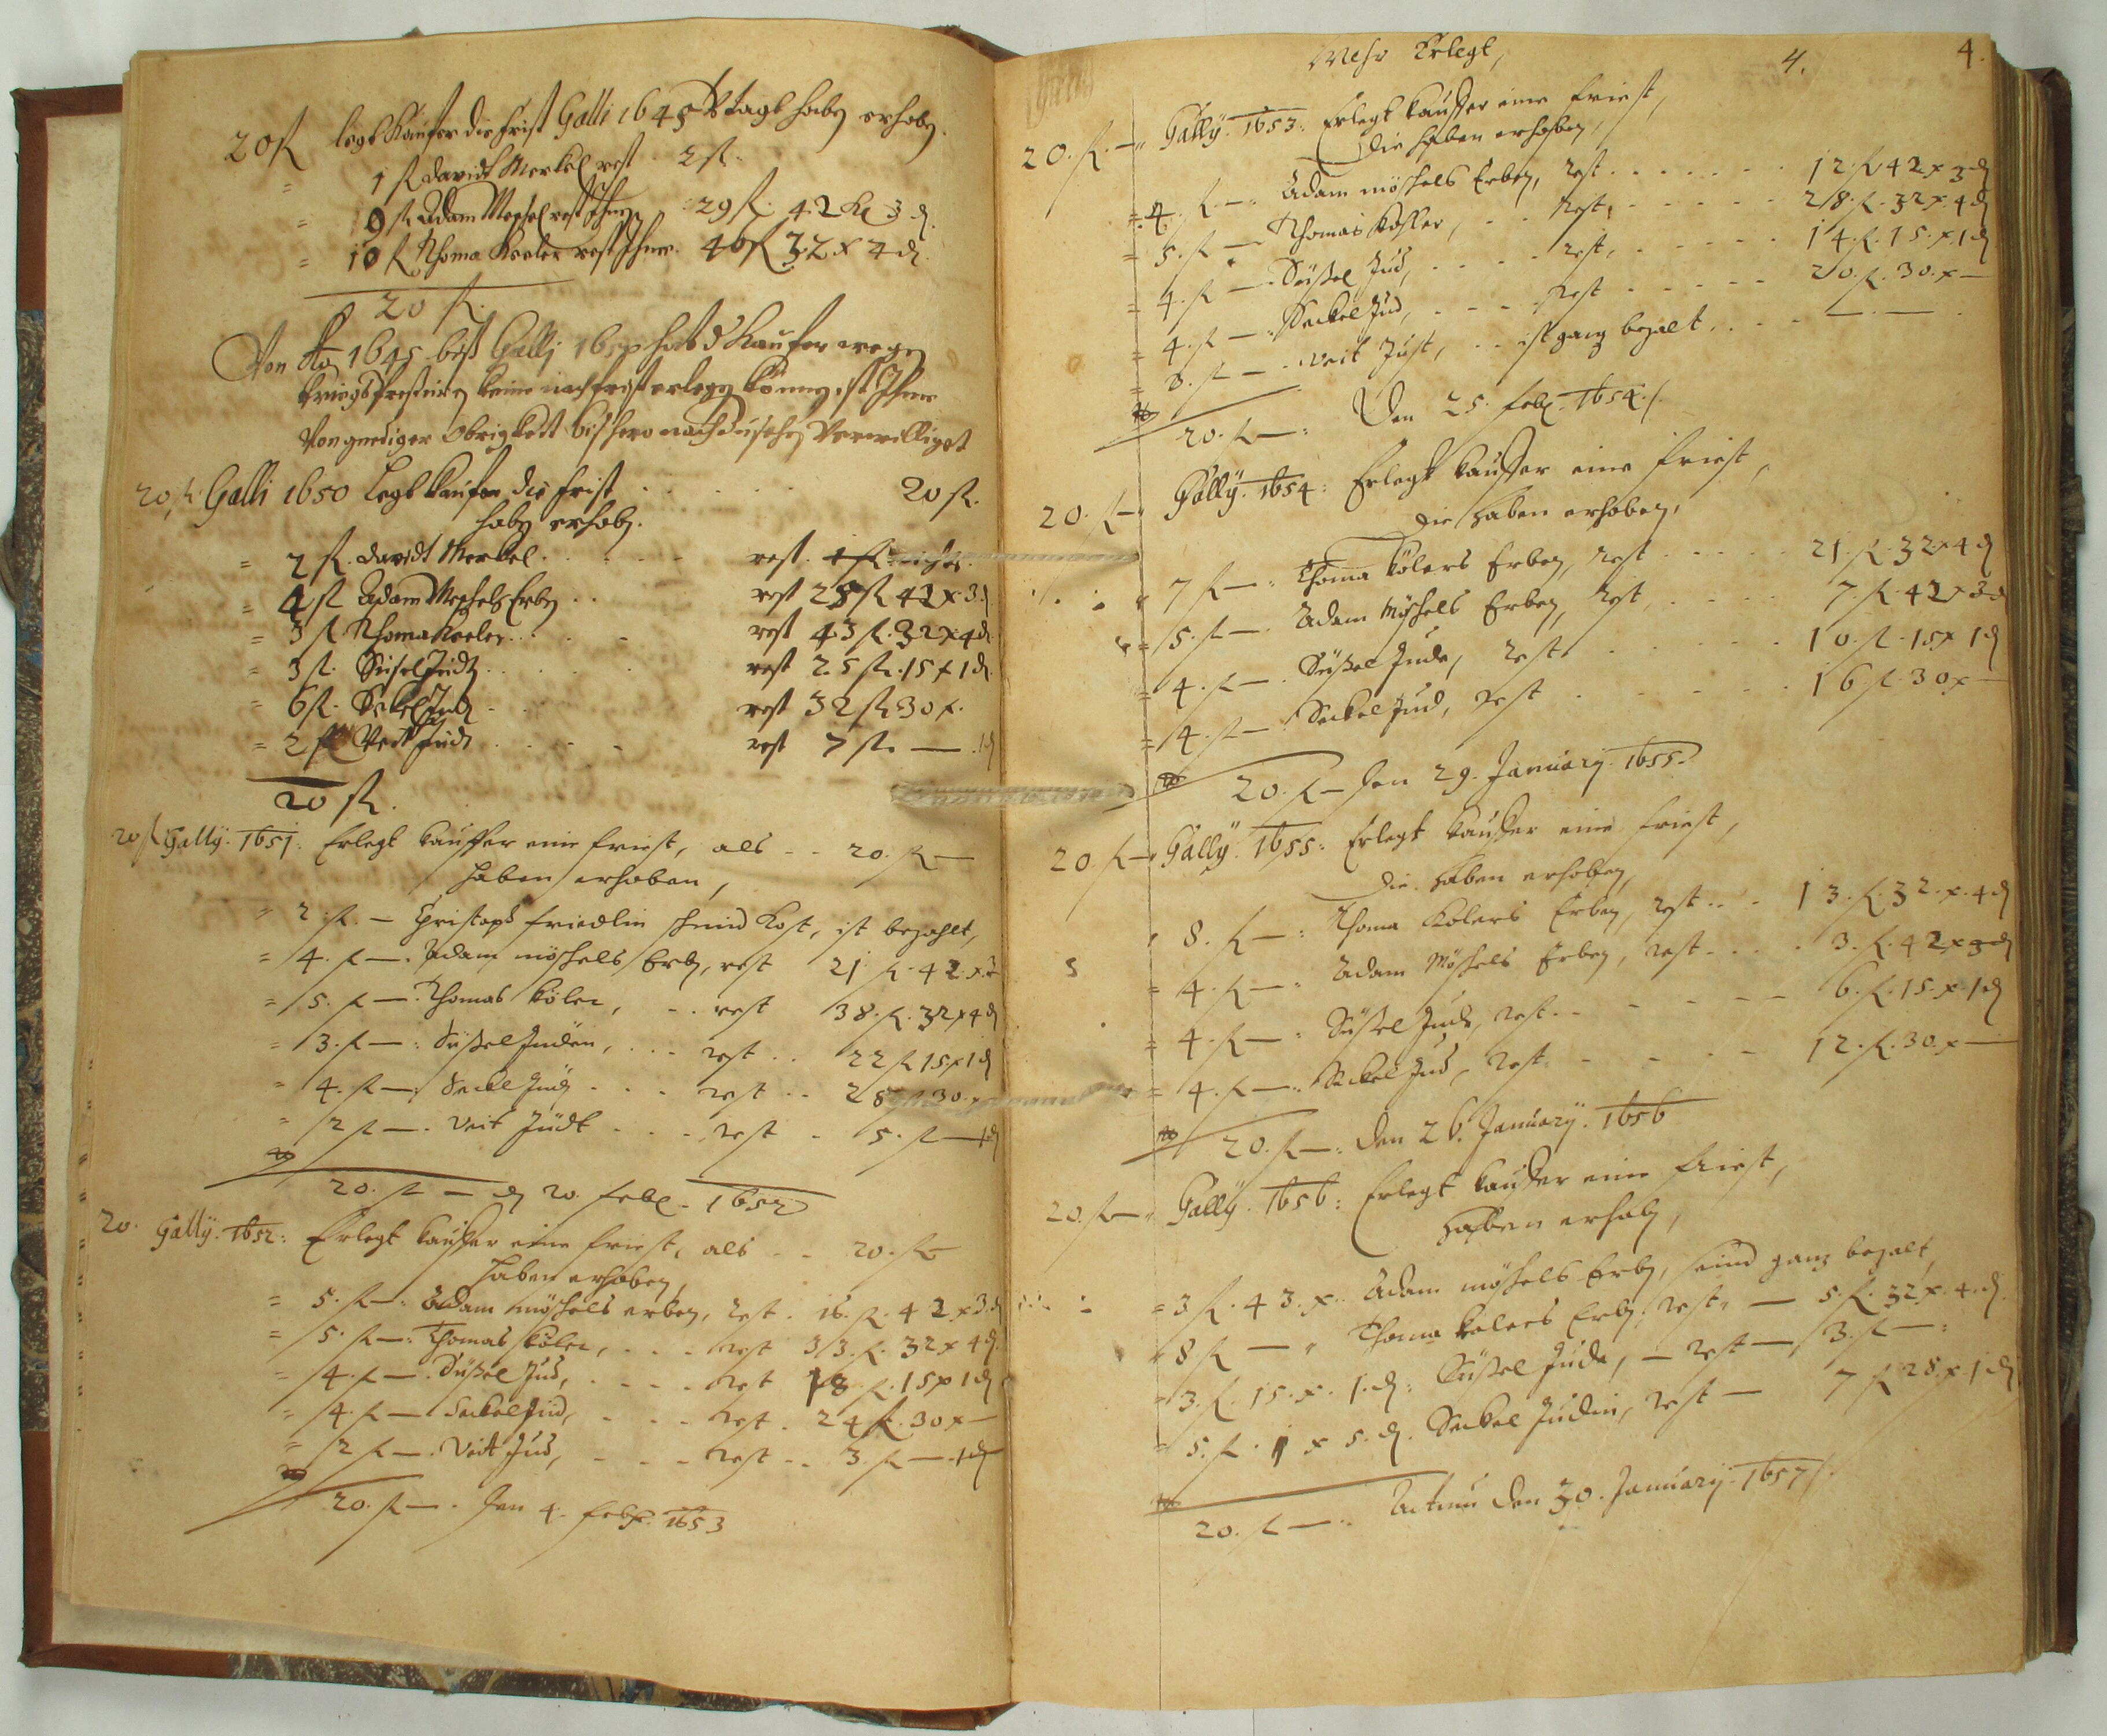 20 fl legt Kaufer die frist Galli 1645 haben erhoben.
= 1 fl davidt Merkel rest 2 fl.
= 9 fl Adam Meschel rest Ihme 29 fl. 42 x 3 d.
= 10 fl Thoma Keeler rest Ihme 46 fl 32 x 4 d.
20 fl.
Von Ao 1645 biß Galli 1650 hatt d Kaufer wegen
kriegs keine nach frist erlegen können, ist Ihme
Von gnediger Obrigkeit biß hero nachzusehen Verwilliget
20 fl. Galli 1650 Legt kaufer die frist . . . . 20 fl.
haben erhoben.
= 2 fl. davidt Merkel . . . . rest. nichts.
= 4 fl Adam Meschels Erben . . rest 25 fl 42 x 3 d.
= 3 fl Thoma Keeler . . . rest 43 fl. 32 x 4 d.
= 3 fl. Süsel Judt . . . rest 25 fl. 15 x 1 d.
= 6 fl. Sekel Judt . . rest 32 fl 30 x.
= 2 fl Veit Judt . . . . rest 7 fl. — . 1 d
20 fl.
20 fl Gally. 1651: Erlegt kauffer eine friest, als - - 20. fl —
haben erhoben,
= 2. fl. — Christoph friedlin, ist bezahlt,
= 4. fl —. Adam möschels Erben, rest 21. fl. 42. x. 3
= 5. fl —. Thomas köler, - . rest 38. fl. 32 x 4 d
= 3. fl —: Süßel Juden, . . . rest . . 22 fl 15 x 1 d
= 4. fl —: Seckel Jud . . . rest . . 28 fl 30. x
= 2 fl —. Veit Judt - - - rest - 5. fl — 1 d
20. fl — den 20. febr. 1652
20. Gally. 1652: Erlegt kauffer eine friest, als - - 20. fl
haben erhoben,
= 5. fl —: Adam möschels erben, rest. 16. fl. 42 x 3. d
= 5. fl —: Thomas köler, . . . rest 33. fl. 32 x 4 d.
= 4. fl —. Süßel Jud, . . . . rest 18. fl. 15 x 1 d
= 4. fl — Seckel Jud, - - - rest. 24 fl. 30 x —
= 2 fl —. Veit Jud, - - - rest - - 3. fl — 1 d
20. fl —. den 4. febr. 1653
Mehr Erlegt, 4. 4.
20. fl. — Gally. 1653: Erlegt kauffer eine friest,
die haben erhoben,
= 4. fl —: Adam möschels Erben, rest . . . . . . . 12 fl 42 x 3 d
= 5. fl — Thomas köhler, - - rest, . . . . . . 28. fl. 32 x. 4 d
= 4. fl — Süßel Jud, . . . . rest, . . . . . 14. fl. 15. x 1 d
= 4. fl —: Seckel Jud, - - - rest - - - - - 20. fl. 30. x —
= 3. fl — . Veit Just, - - ist ganz bezalt, . . . — . —
20. fl —: Den 25. febr. 1654./.
20. fl — Gally. 1654: Erlegt kauffer eine friest,
die haben erhoben,
7 fl —: Thoma kölers Erben, rest . . . . . 21. fl. 32 x 4 d
= 5. fl —. Adam Möschels Erben, rest, . . . . 7. fl. 42 x 3 d
= 4. fl —. Süßel Jude, rest, . . . . . . 10. fl. 15 x 1 d
= 4. fl — Seckel Jud, rest . . . . . . 16 fl. 30 x —
20. fl — Den 29. January. 1655.
20. fl — Gally. 1655: Erlegt kauffer eine friest,
die haben erhoben,
8. fl —: Thoma Kolers Erben, rest . . . 13. fl. 32. x. 4 d
= 4. fl —: Adam Möschels Erben, rest . . . . 3. fl. 42 x 3 d
= 4. fl —: Süßel Jude, rest . . - - - - 6. fl. 15. x 1 d
= 4. fl —: Seckel Jud, rest. - - - - 12. fl. 30. x —
20. fl —: Den 26. January. 1656
20. fl — Gally. 1656: Erlegt kauffer eine friest,
haben erhoben,
= 3 fl. 43. x. Adam möschels Erben, seind ganz bezalt,
8 fl — " Thoma kolers Erben, rest, — 5 fl. 32 x. 4. d.
= 3. fl. 15. x. 1. d: Süßel Jude, — rest — 3. fl —:
= 5. fl. 1 x 5. d. Seckel Judin, rest — 7 fl 28. x. 1 d
20. fl —: Actum den 30. January. 1657/.